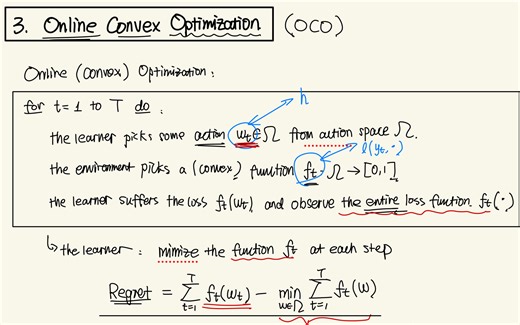 3. Online Convex Optimization (OCO)
Online (Convex) Optimization :
for t=1 to T do :
h
the learner picks some action wt ∈ Ω from action space Ω.
l(yt, ·)
the environment picks a (convex) function ft : Ω → [0,1]
the learner suffers the loss ft(wt) and observe the entire loss function ft(·)
↳ the learner : mimize the function ft at each step
Regret = ∑_{t=1}^{T} ft(wt) − min_{w∈Ω} ∑_{t=1}^{T} ft(w)